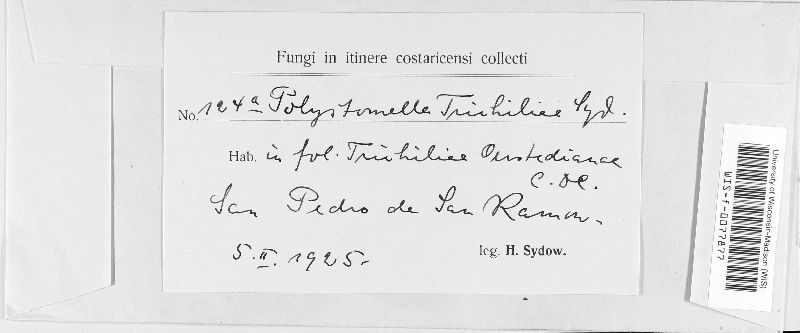 Fungi in itinere costaricensi collecti
No. 124a Polystomella Trichiliae Syd.
Hab. in fol. Trichiliae Oerstedianae
C. DC.
San Pedro de San Ramon.
5. II. 1925.
leg. H. Sydow.
University of Wisconsin-Madison (WIS)
WIS-f-0077877